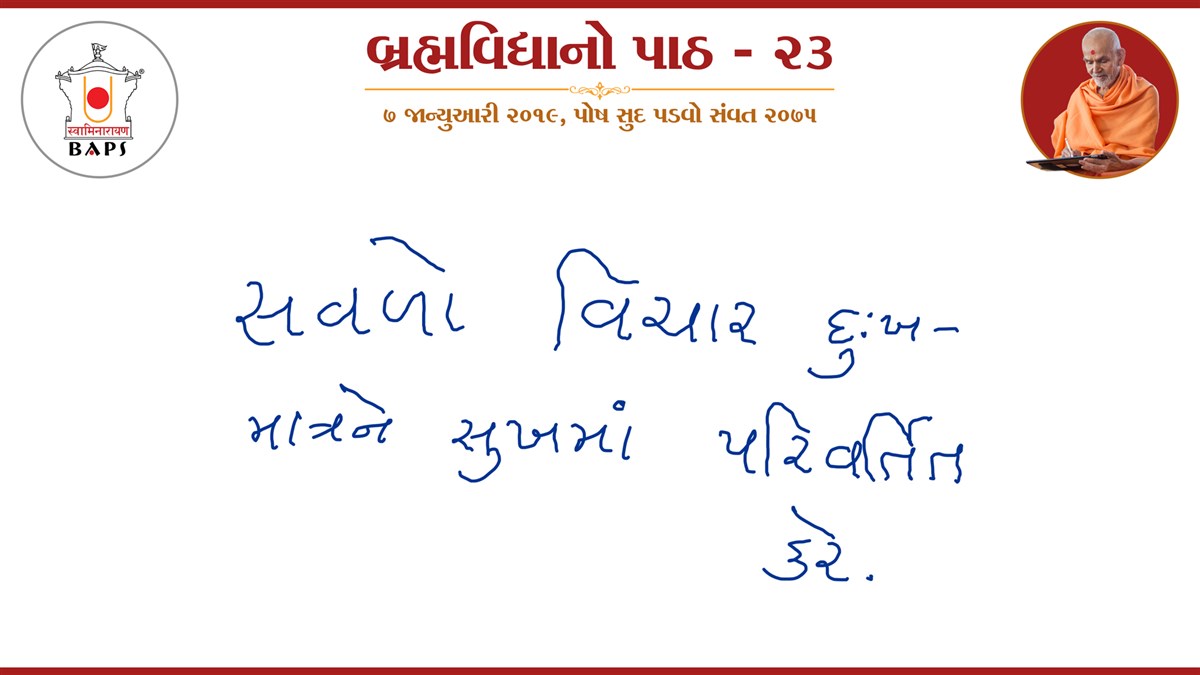 બ્રહ્મવિદ્યાનો પાઠ - ૨૩
૭ જાન્યુઆરી ૨૦૧૯, પોષ સુદ પડવો સંવત ૨૦૭૫
स्वामिनारायण
BAPS
સવળો વિચાર દુઃખ-
માત્રને સુખમાં પરિવર્તિત
કરે.